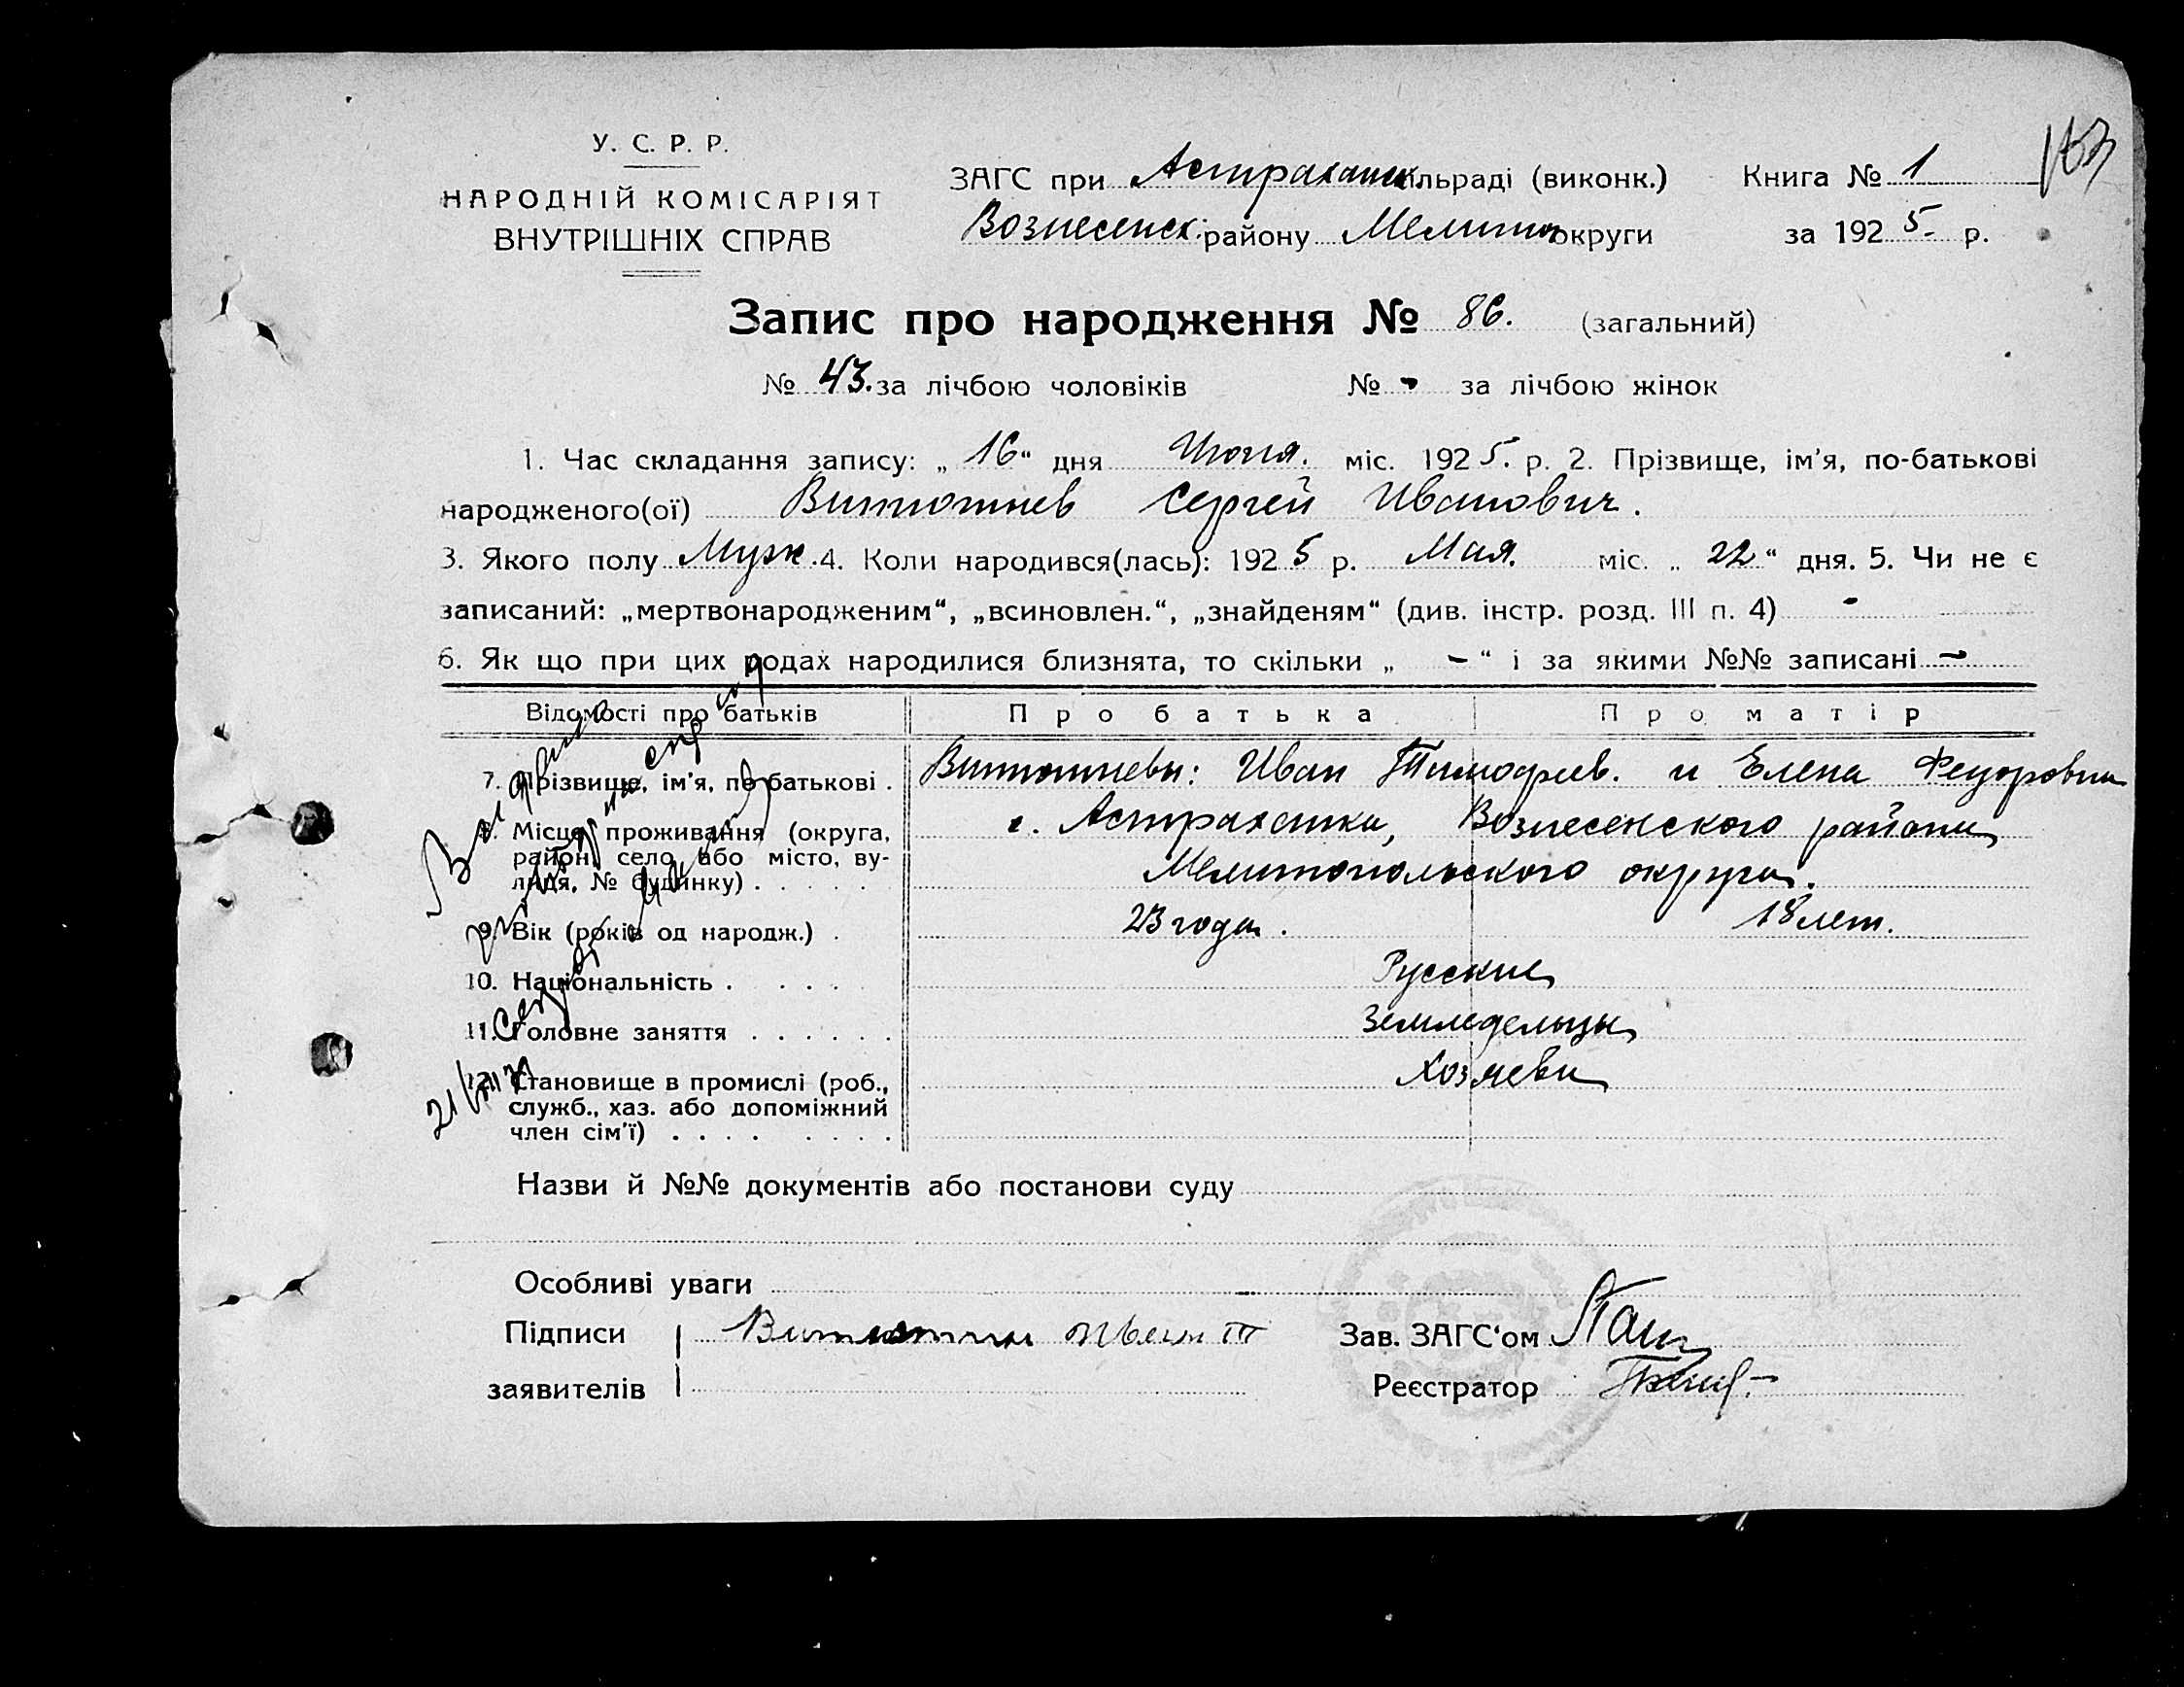 У. С. Р. Р.
НАРОДНІЙ КОМІСАРІЯТ
ВНУТРІШНІХ СПРАВ
ЗАГС при Астраханск. сільраді (виконк.) Книга № 1
Вознесенск. району Мелитоп. округи за 1925 р.
Запис про народження № 86. (загальний)
№ 43. за лічбою чоловіків № - за лічбою жінок
1. Час складання запису: „16“ дня Июня. міс. 1925. р. 2. Прізвище, ім'я, по-батькові
народженого(ої) Витютнев Сергей Иванович.
3. Якого полу Муж. 4. Коли народився(лась): 1925 р. Мая. міс. „22“ дня. 5. Чи не є
записаний: „мертвонародженим“, „всиновлен.“, „знайденям“ (див. інстр. розд. III п. 4) -
6. Як що при цих родах народилися близнята, то скільки „ - “ і за якими №№ записані -
Відомості про батьків Про батька Про матір
7. Прізвище, ім'я, по батькові . Витютневы: Иван Тимофеев. и Елена Федоровна
8. Місце проживання (округа, с. Астраханка, Вознесенского района
район, село або місто, ву-
лиця, № будинку) . . . . . Мелитопольского округа.
9. Вік (років од народж.) . 23 года. 18 лет.
10. Національність . . . . . Русские
11. Головне заняття . . . . . . Земледельцы
12. Становище в промислі (роб., Хозяева
служб., хаз. або допоміжний
член сім'ї) . . . . . . . .
Назви й №№ документів або постанови суду
Особливі уваги
Підписи Витютнев Иван Т Зав. ЗАГС'ом
заявителів Реєстратор